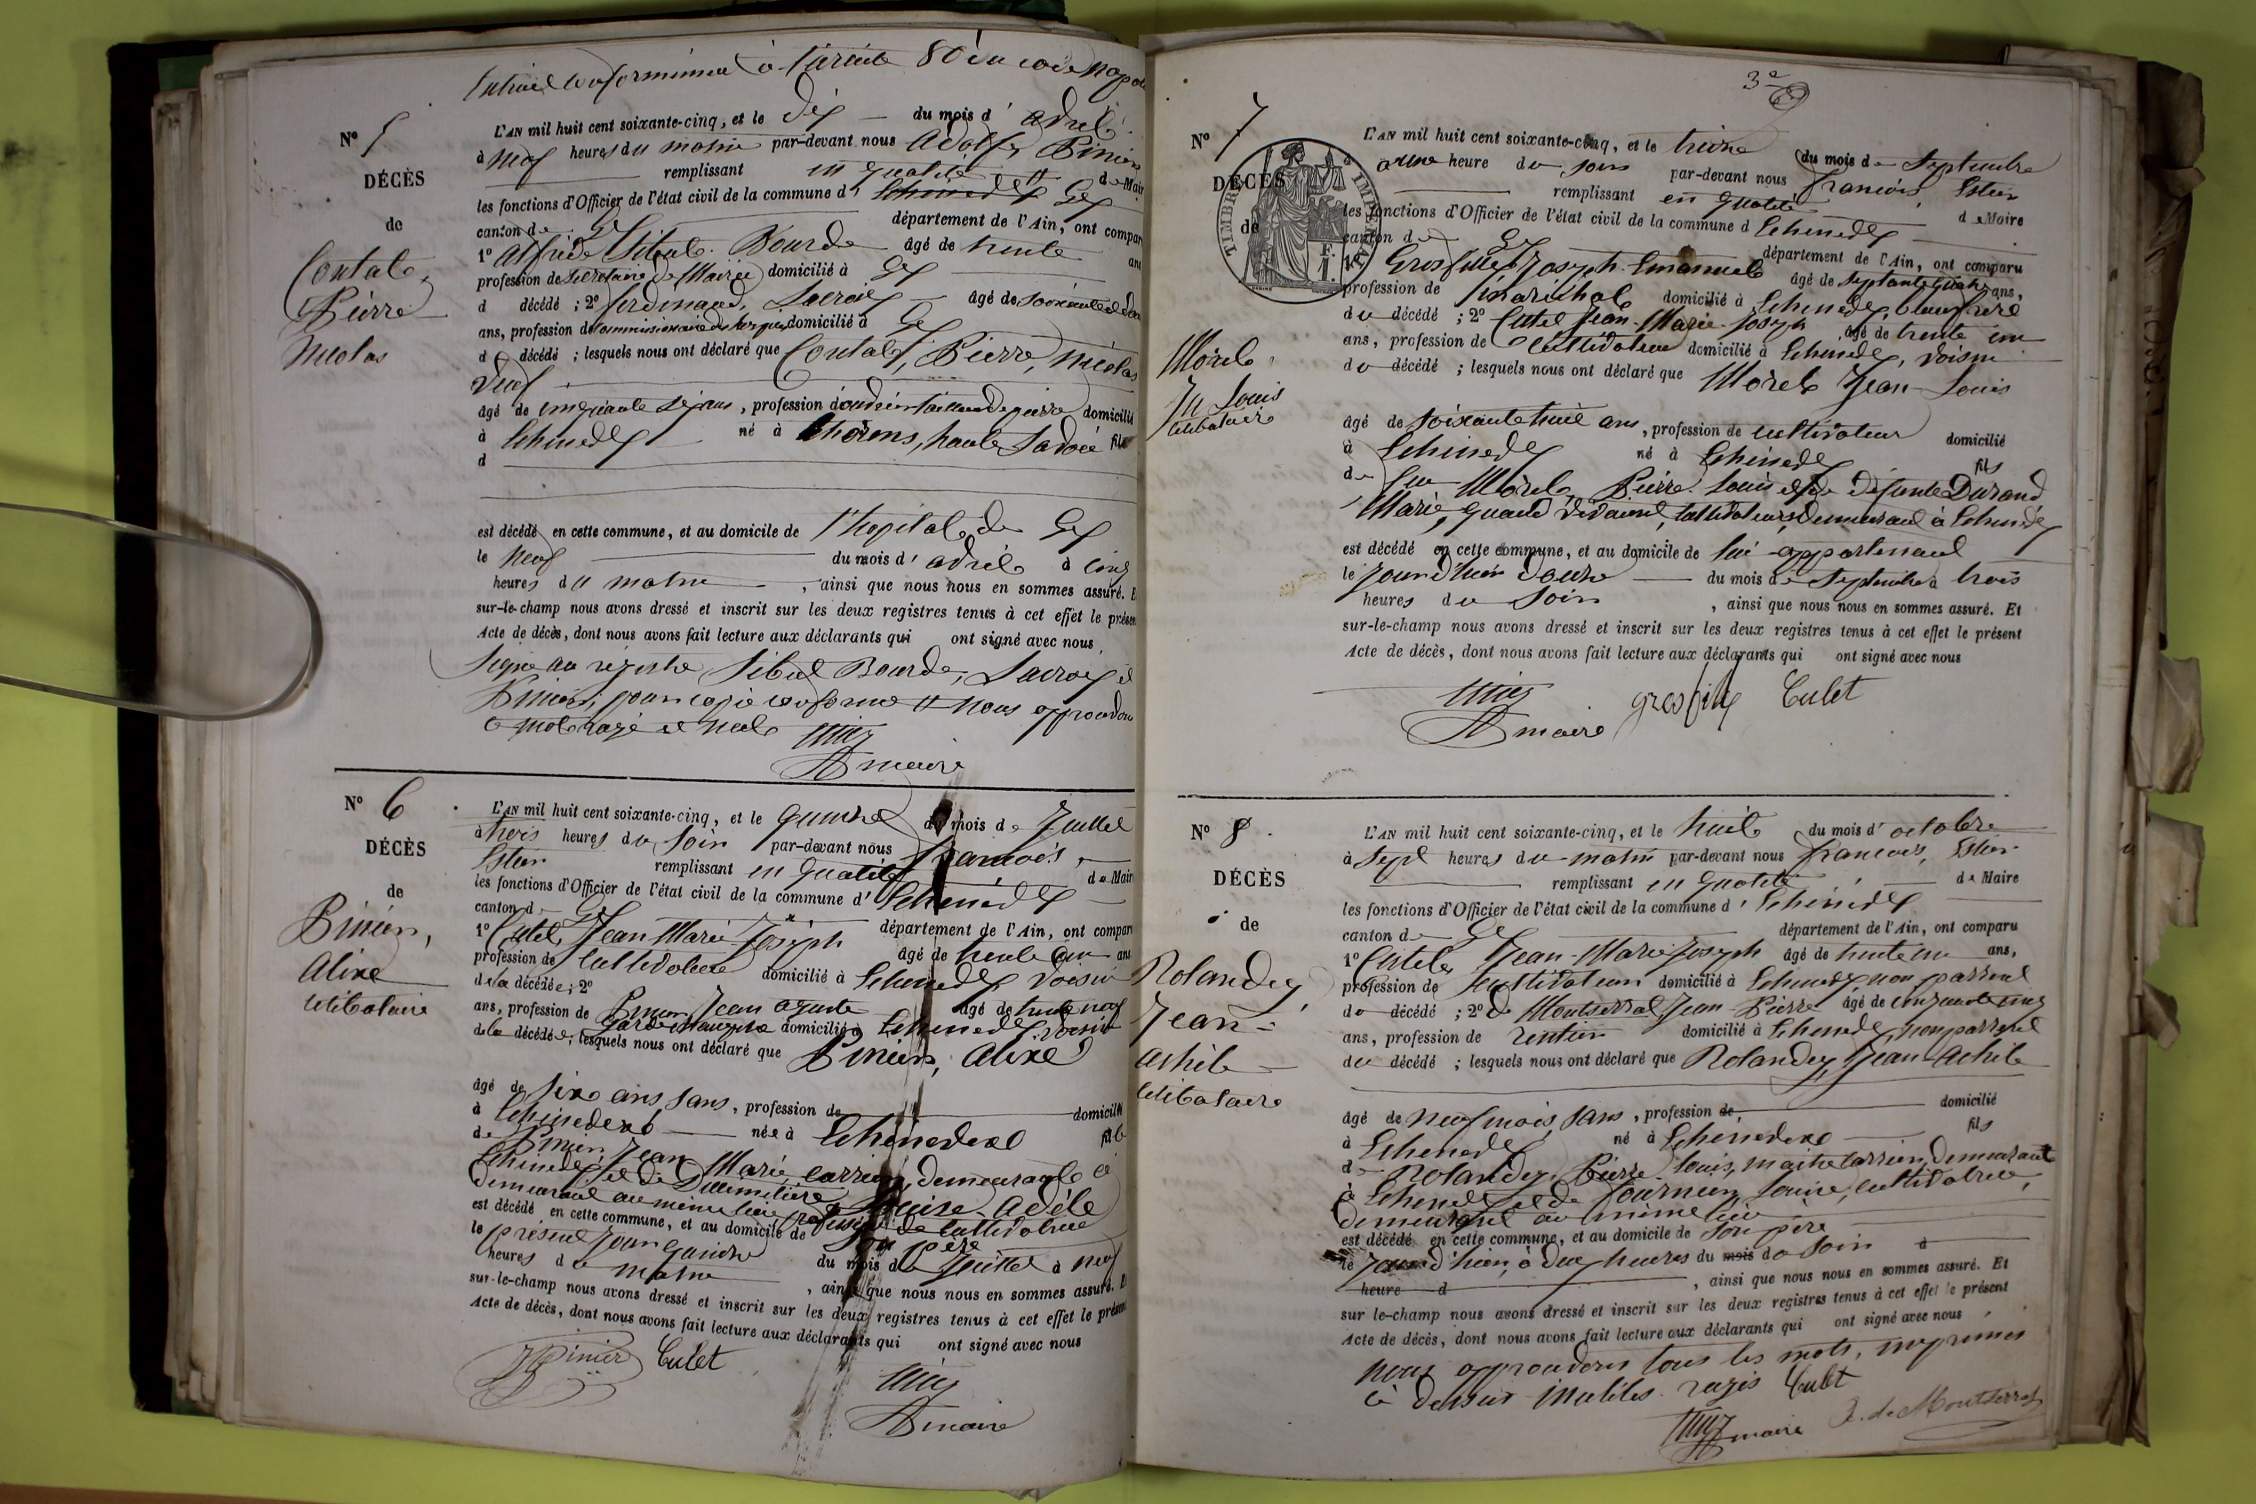 conformément à l'article 80 du code Napo
N° 5
DÉCÈS
de
Contat,
Pierre
Nicolas
L'AN mil huit cent soixante-cinq, et le dix du mois d' avril
à neuf heures du matin par-devant nous Adolfe Pinier
remplissant en qualité de Mair
les fonctions d'Officier de l'état civil de la commune d' Gex
canton de Gex département de l'Ain, ont compar
1° Alfride Sibut Bourde âgé de trente ans
profession de secrétaire de Mairie domicilié à Gex
d décédé ; 2° Ferdinand, Lacroix âgé de soixante
ans, profession de commissionaire domicilié à Gex
d décédé ; lesquels nous ont déclaré que Contat, Pierre, Nicolas
veuf
âgé de cinquante six ans, profession d tailleur de pierre domicilié
à Echenevex né à Thorens, haute Savoie fils
d
est décédé en cette commune, et au domicile de l'hopital de Gex
le neuf du mois d' avril à cinq
heures du matin, ainsi que nous nous en sommes assuré. E
sur-le-champ nous avons dressé et inscrit sur les deux registres tenus à cet effet le présen
Acte de décès, dont nous avons fait lecture aux déclarants qui ont signé avec nous,
Signé au registre Sibut Bourde, Lacroix et
Pinier, pour copie conforme # nous approuvon
mot rayé et nul
maire
N° 6
DÉCÈS
de
Pinier,
Alixe
célibataire
L'AN mil huit cent soixante-cinq, et le quinze du mois de Juillet
à trois heures du soir par-devant nous François,
Estier remplissant en qualité de Mair
les fonctions d'Officier de l'état civil de la commune d' Echenevex
canton de Gex département de l'Ain, ont compar
1° Cutet, Jean Marie Joseph âgé de trente un ans
profession de cultivateur domicilié à Echenevex voisin
de la décédée; 2° Pinier Jean âgé de trente neuf
ans, profession de Garde domicilié à Echenevex voisin
de la décédée; lesquels nous ont déclaré que Pinier, Alixe
âgé de sixe ans sans, profession de domicilié
à Echenevex née à Echenevexe fille
de Pinier, Jean Marie, carrier, demeurant à
Echenevex et de Louise Adéle
demeurant au même lieu profession de cultivatrice
est décédé en cette commune, et au domicile de son père
le présent jour quinze du mois de Juillet à neuf
heures du matin, ainsi que nous nous en sommes assuré. E
sur-le-champ nous avons dressé et inscrit sur les deux registres tenus à cet effet le présen
Acte de décès, dont nous avons fait lecture aux déclarants qui ont signé avec nous
Pinier Cutet
maire
3e
N° 7
TIMBRE IMPERIAL
DÉCÈS
de
Morel,
Jn Louis
célibataire
L'AN mil huit cent soixante-cinq, et le treize du mois de Septembre
à une heure du soir par-devant nous François, Estier
remplissant en qualité de Maire
les fonctions d'Officier de l'état civil de la commune d Echenevex
canton de Gex département de l'Ain, ont comparu
1° Grosfilley Joseph Emanuel âgé de septante quatre ans,
profession de maréchal domicilié à Echenevex, beau frère
du décédé ; 2° Cutet Jean Marie Joseph âgé de trente un
ans, profession de cultivateur domicilié à Echenevex, voisin
du décédé ; lesquels nous ont déclaré que Morel Jean Louis
âgé de soixante huit ans, profession de cultivateur domicilié
à Echenevex né à Echenevex fils
de feu Morel, Pierre Louis et de défunte Durand
Marie, quand vivaient, cultivateurs, demeurant à Echenevex
est décédé en cette commune, et au domicile de lui appartenant
le jour d'hier douze du mois de Septembre à trois
heures du soir, ainsi que nous nous en sommes assuré. Et
sur-le-champ nous avons dressé et inscrit sur les deux registres tenus à cet effet le présent
Acte de décès, dont nous avons fait lecture aux déclarants qui ont signé avec nous
maire Cutet
N° 8
DÉCÈS
de
Rolandez,
Jean
Achile
célibataire
L'AN mil huit cent soixante-cinq, et le huit du mois d' octobre
à sept heures du matin par-devant nous François, Estier
remplissant en qualité de Maire
les fonctions d'Officier de l'état civil de la commune d' Echenevex
canton de Gex département de l'Ain, ont comparu
1° Cutet, Jean Marie Joseph âgé de trente un ans,
profession de cultivateur domicilié à Echenevex, non parent
du décédé ; 2° de Montserrat, Jean Pierre âgé de cinquante cinq
ans, profession de rentier domicilié à Echenevex, non parent
du décédé ; lesquels nous ont déclaré que Rolandez, Jean Achile
âgé de neuf mois, sans, profession de domicilié
à Echenevex né à Echenevexe fils
de Rolandez, Pierre Louis, maitre carrier, demeurant
à Echenevex et de Fournier, Louise, cultivatrice,
demeurant au même lieu
est décédé en cette commune, et au domicile de son père
le jour d'hier, à deux heures du mois du soir à
heure d, ainsi que nous nous en sommes assuré. Et
sur le-champ nous avons dressé et inscrit sur les deux registres tenus à cet effet le présent
Acte de décès, dont nous avons fait lecture aux déclarants qui ont signé avec nous,
nous approuvons tous les mots, imprimés
ci dessus inutiles rayés Cutet
maire de Montserrat